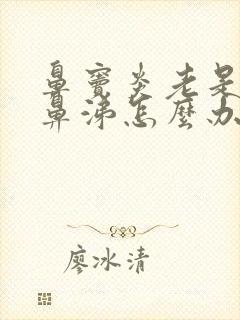 鼻窦炎老是
鼻涕怎麼办
廖冰清